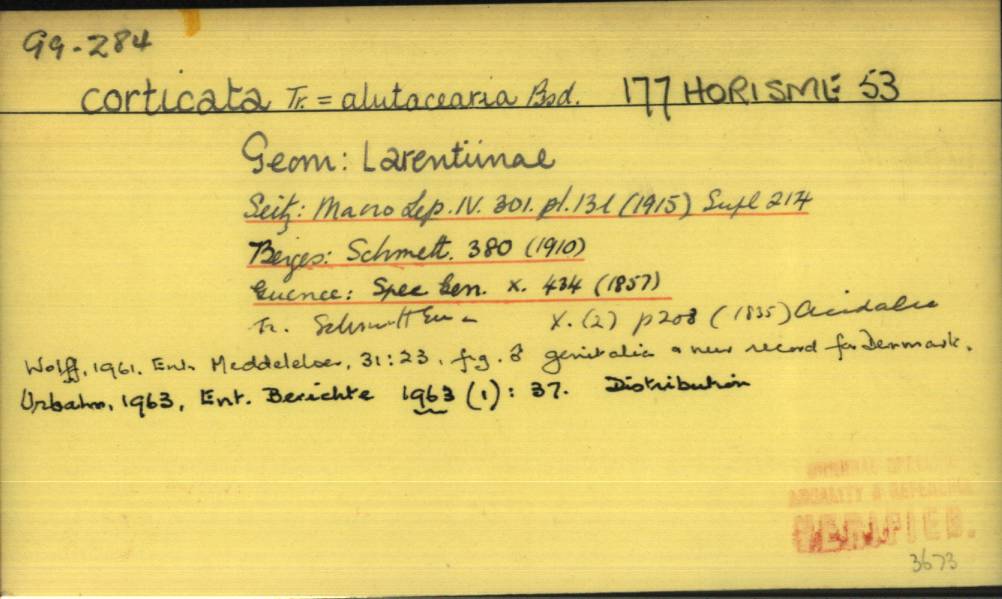 G9-284
corticata Tr. = alutacearia Bsd. 177 HORISME 53
Geom: Larentiinae
Seitz: Macro Lep. IV. 301. pl. 13l (1915) Supl 214
Berges: Schmett. 380 (1910)
Guenee: Spec Gen. X. 434 (1857)
Tr. Schmett Eur X. (2) p208 (1835) Acidalia
Wolff, 1961. Ent. Meddelelser, 31:23, fig. ♂ genitalia & new record for Denmark.
Urbahn, 1963, Ent. Berichte 1963 (1): 37. Distribution
ORIGINAL
LOCALITY & REFERENCE
VERIFIED.
3673